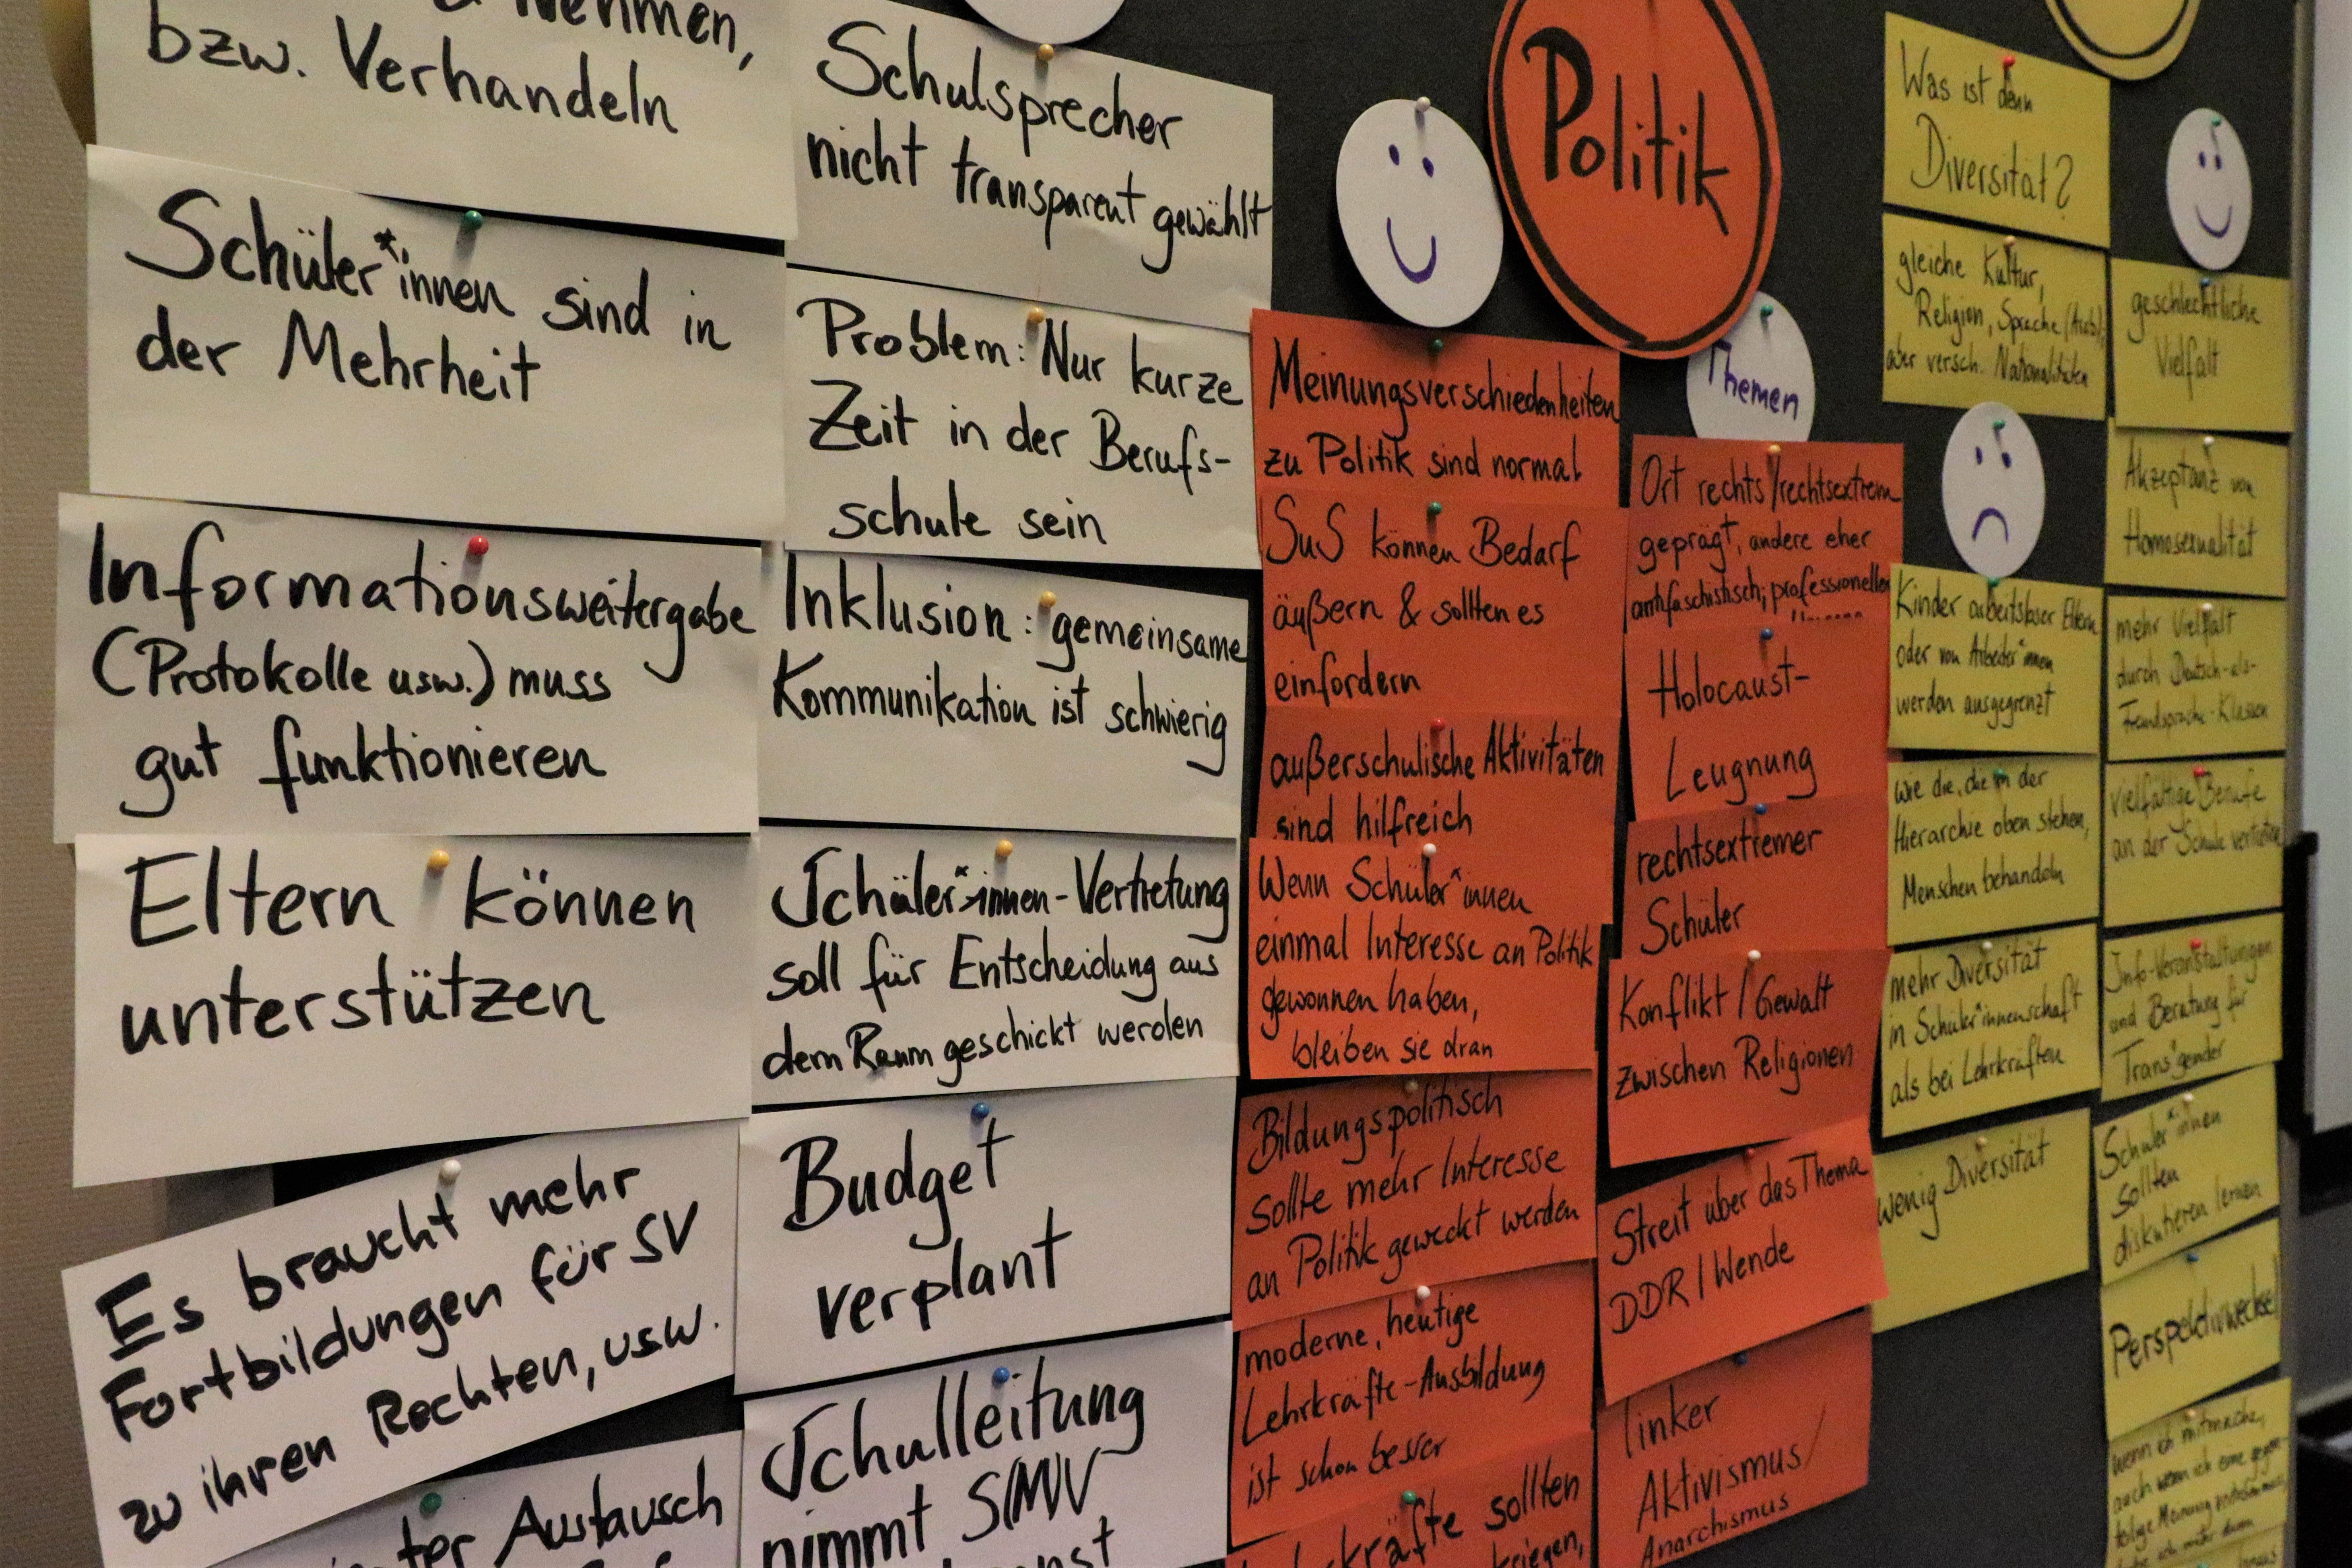 & Nehmen,
bzw. Verhandeln
Schüler*innen sind in
der Mehrheit
Informationsweitergabe
(Protokolle usw.) muss
gut funktionieren
Eltern können
unterstützen
Es braucht mehr
Fortbildungen für SV
zu ihren Rechten, usw.
Austausch
Schulsprecher
nicht transparent gewählt
Problem: Nur kurze
Zeit in der Berufs-
schule sein
Inklusion: gemeinsame
Kommunikation ist schwierig
Schüler*innen-Vertretung
soll für Entscheidung aus
dem Raum geschickt werden
Budget
verplant
Schulleitung
nimmt S(M)V
Politik
Meinungsverschiedenheiten
zu Politik sind normal
SuS können Bedarf
äußern & sollten es
einfordern
außerschulische Aktivitäten
sind hilfreich
Wenn Schüler*innen
einmal Interesse an Politik
gewonnen haben,
bleiben sie dran
Bildungspolitisch
sollte mehr Interesse
an Politik geweckt werden
moderne, heutige
Lehrkräfte-Ausbildung
ist schon besser
sollten
kriegen,
Themen
Ort rechts/rechtsextrem
geprägt, andere eher
antifaschistisch; professioneller
Holocaust-
Leugnung
rechtsextremer
Schüler
Konflikt / Gewalt
zwischen Religionen
Streit über das Thema
DDR / Wende
linker
Aktivismus/
Anarchismus
Was ist denn
Diversität?
gleiche Kultur,
Religion, Sprache (Arab),
aber versch. Nationalitäten
Kinder arbeitsloser Eltern
oder von Arbeiter*innen
werden ausgegrenzt
wie die, die in der
Hierarchie oben stehen,
Menschen behandeln
mehr Diversität
in Schüler*innenschaft
als bei Lehrkräften
wenig Diversität
geschlechtliche
Vielfalt
Akzeptanz von
Homosexualität
mehr Vielfalt
durch Deutsch-als-
Fremdsprache-Klassen
vielfältige Berufe
an der Schule vertreten
Info-Veranstaltungen
und Beratung für
Trans*gender
Schüler*innen
sollten
diskutieren lernen
Perspektivwechsel
wenn ich mitmache,
auch wenn ich eine gegen-
teilige Meinung